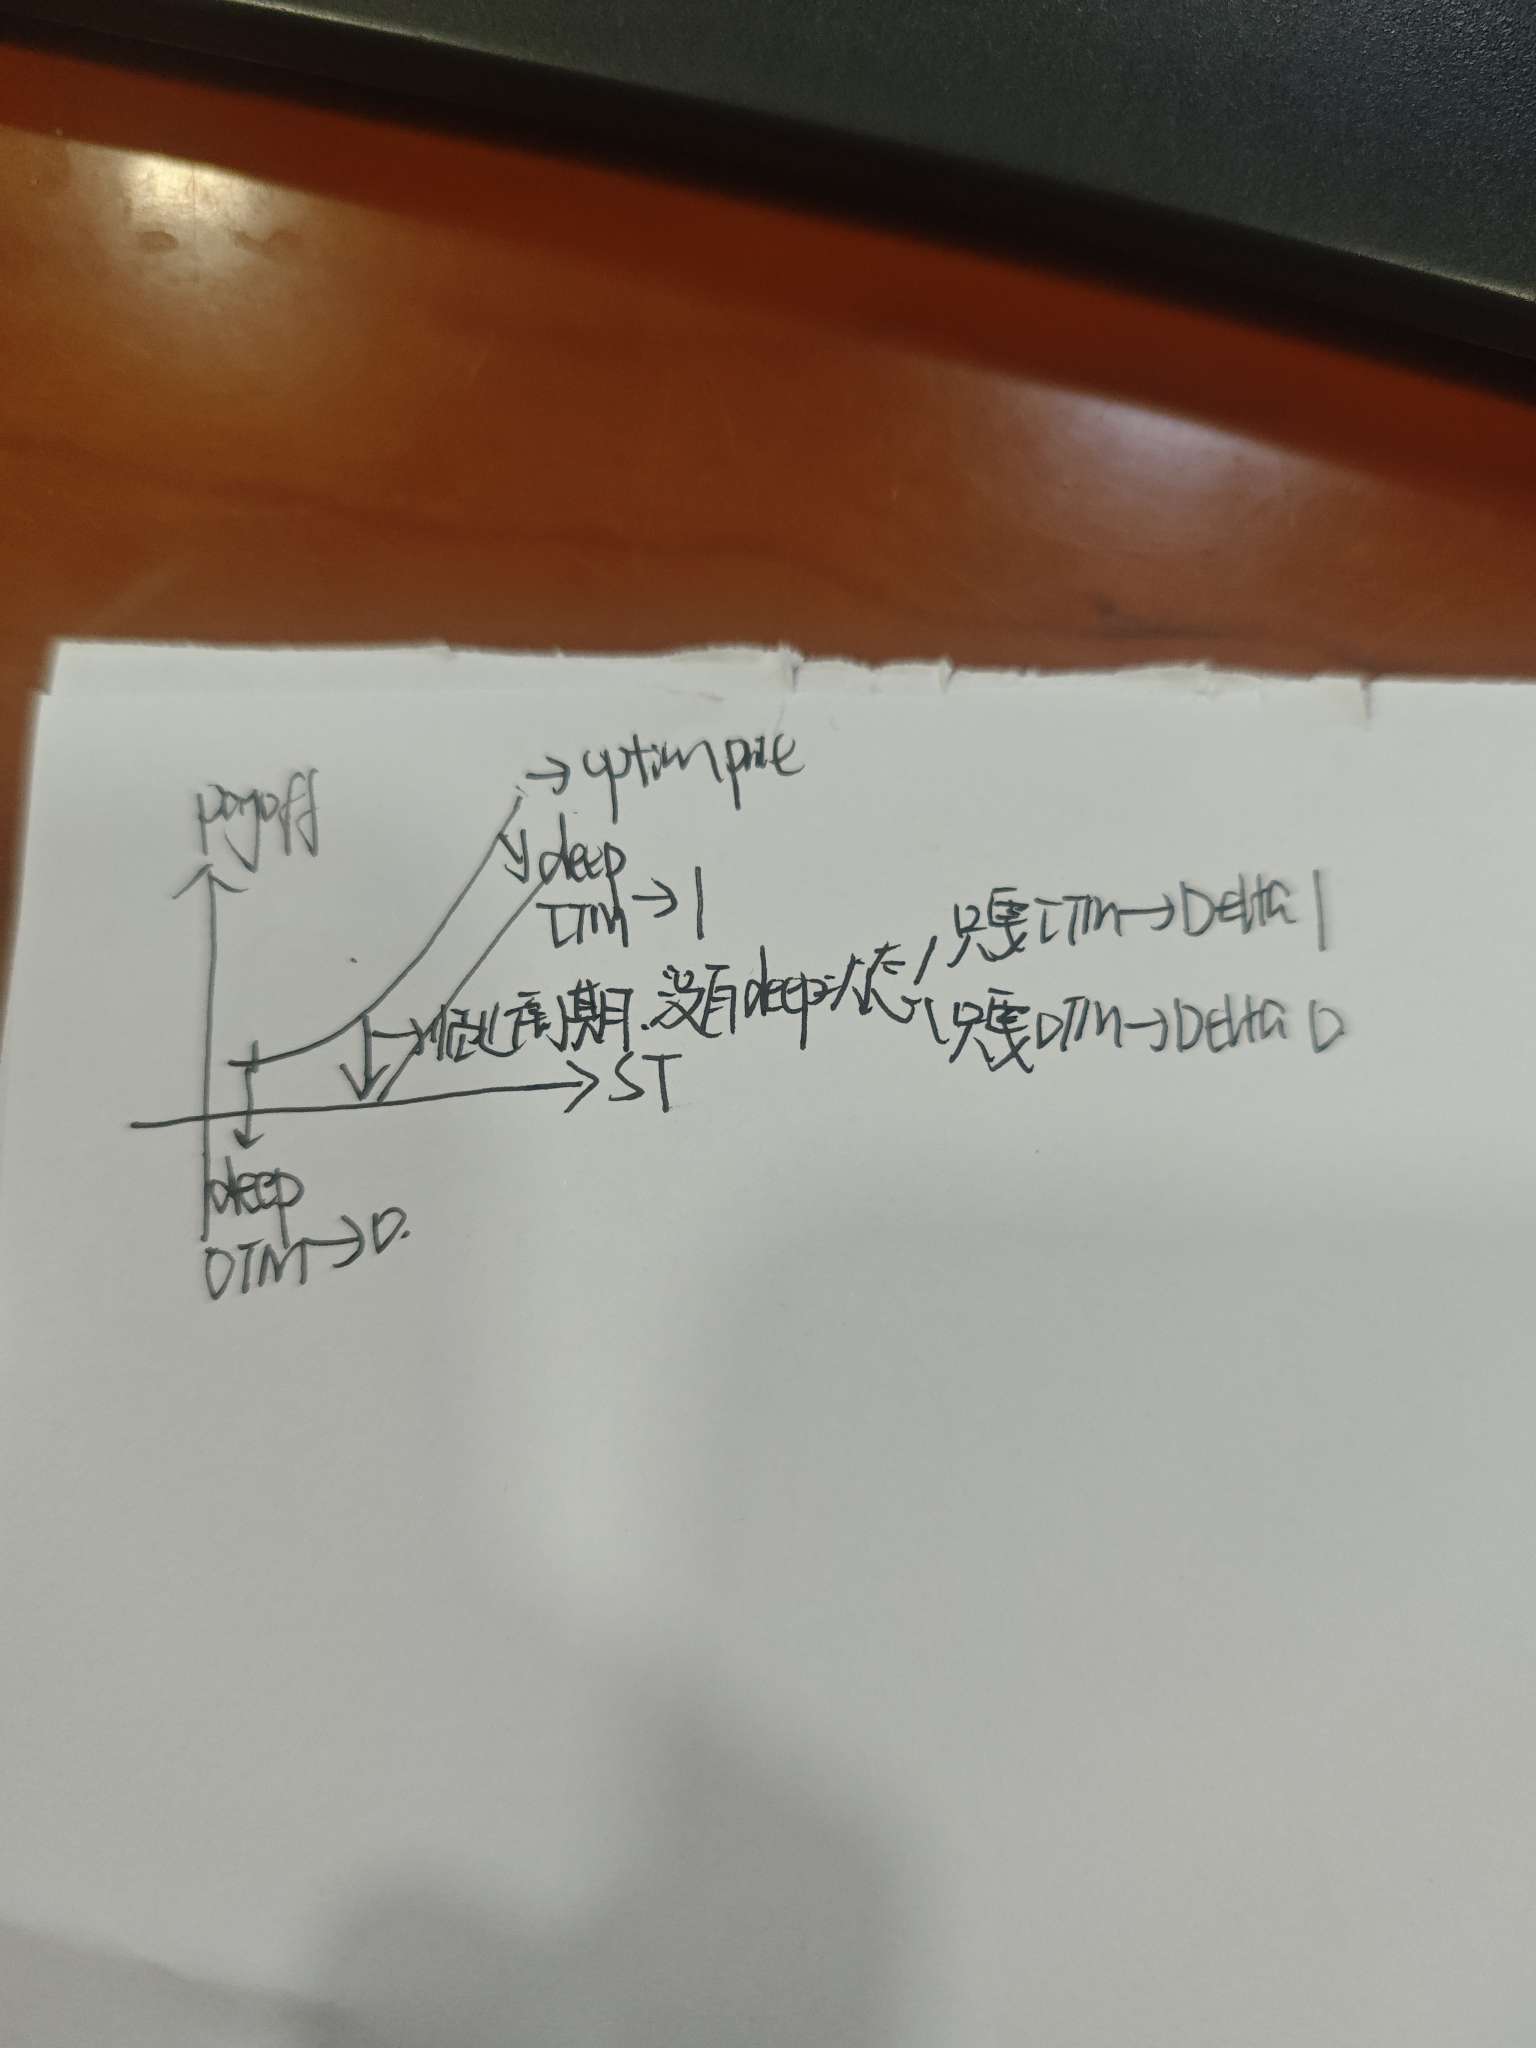 payoff
→ option price
deep
ITM → 1
只要ITM → Delta 1
→ 临近周期.没有deep状态
只要OTM → Delta 0
ST
deep
OTM → 0.